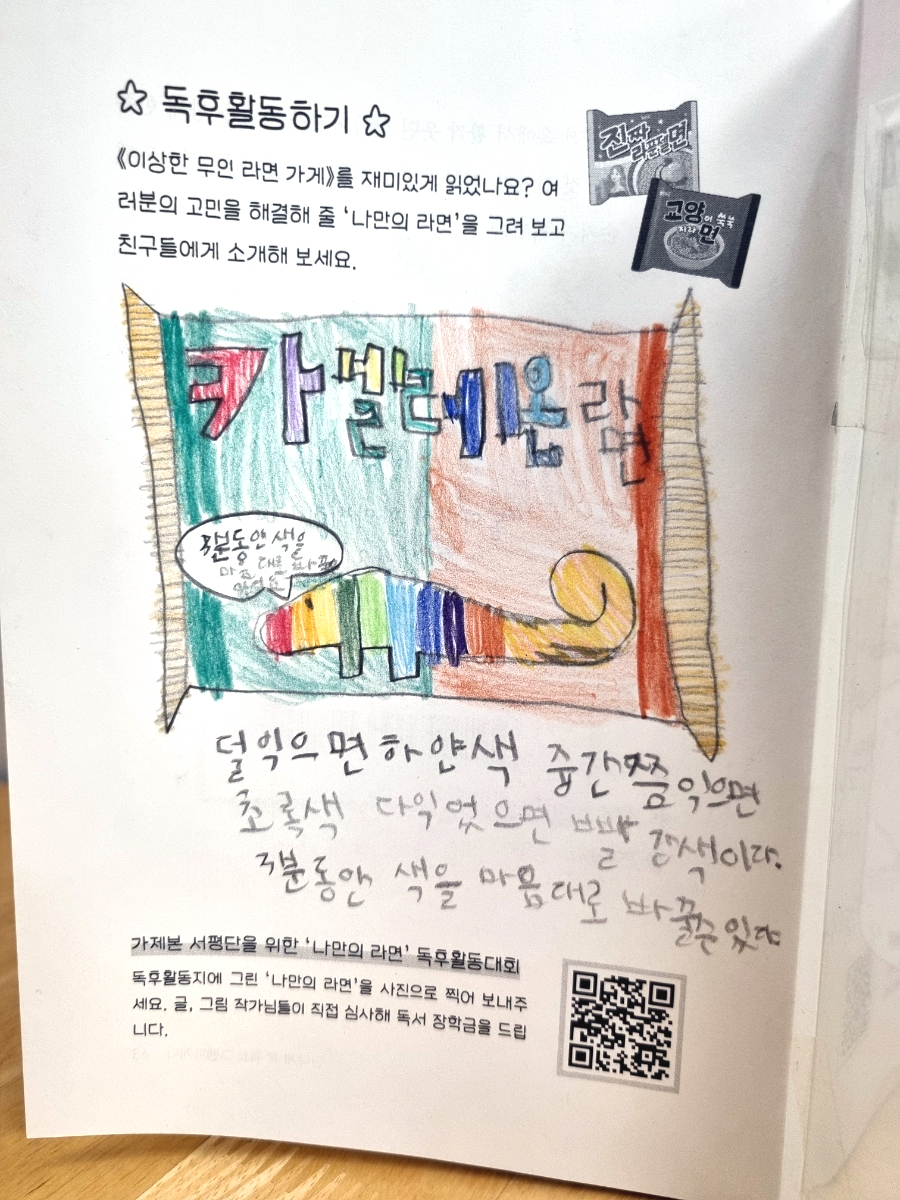 독후활동하기
《이상한 무인 라면 가게》를 재미있게 읽었나요? 여
러분의 고민을 해결해 줄 ‘나만의 라면’을 그려 보고
친구들에게 소개해 보세요.
진짜
라면
고양이 쑥쑥
자라면
카멜레온 라면
3분동안 색을
마음 대로 바꿀
덜익으면 하얀색 중간쯤 익으면
초록색 다익었으면 빨강색이다.
3분동안 색을 마음대로 바꿀수있다
가제본 서평단을 위한 ‘나만의 라면’ 독후활동대회
독후활동지에 그린 ‘나만의 라면’을 사진으로 찍어 보내주
세요. 글, 그림 작가님들이 직접 심사해 독서 장학금을 드립
니다.